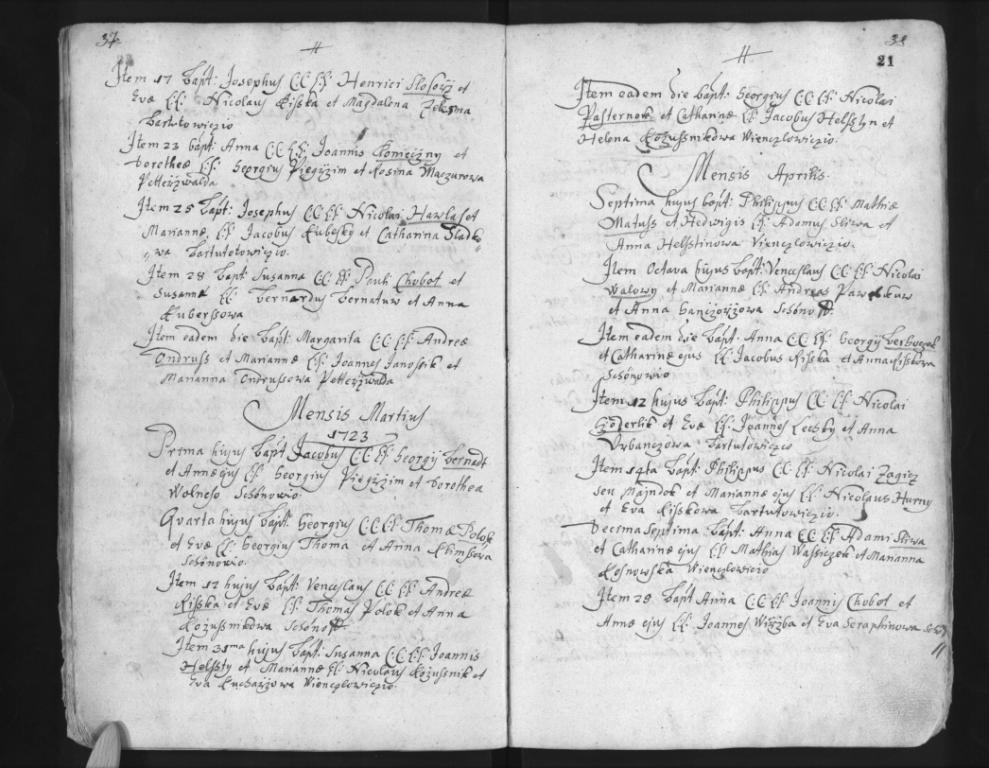 37
Item 17 bapt: Josephus CC LL: Henrici Slosorz et
Evæ LL: Nicolaus Risska et Magdalena
Bartutowizio
Item 23 bapt: Anna CC LL: Joannis Konieczny et
Dorotheæ LL: Georgius Piegrzim et Rosina Maczurowa
Petterzwalda
Item 25 bapt: Josephus CC LL: Nicolai Hawlas et
Mariannæ, LL: Jacobus Kubesky et Catharina Sladko
wa Bartutotowizio.
Item 28 bapt: Susanna CC LL Pauli Chobot et
Susannæ LL: Bernardus Bernatuw et Anna
Kuberssowa
Item eadem die bapt: Margarita CC LL: Andreæ
Ondruss et Mariannæ LL: Joannes Janossik et
Marianna Ondrussowa Petterzwalda
Mensis Martius
1723
Prima hujus bapt Jacobus CC LL: Georgÿ Bernadt
et Annæ ejus LL Georgius Piegrzim et Dorothea
Schönowio
Qvarta hujus bapt: Georgius CC LL: Thomæ Polok
et Evæ LL: Georgius Thoma et Anna Klimssowa
Schönowio.
Item 12 hujus bapt: Venceslaus CC LL: Andreæ
Risska et Evæ LL: Thomas Polok et Anna
Kożussnikowa Schönow
Item 31ma hujus bapt: Susanna CC LL: Joannis
Helssty et Mariannæ LL: Nicolaus Kożussnik et
Eva Kucharzowa Wienczlowiczio.
38
21
Item eadem die bapt: Georgius CC LL: Nicolai
Pasternok et Catharinæ LL: Jacobus Helsstyn et
Helena Kożussnikowa Wienczlowiczio.
Mensis Aprilis.
Septima hujus bapt: Philippus CC LL: Mathiæ
Matuss et Hedwigis LL: Adamus Sliwa et
Anna Helsstinowa Vienczlowiczio.
Item Octava hujus bapt: Venceslaus CC LL: Nicolai
Walowy et Mariannæ LL: Andreas
et Anna Schönow.
Item eadem die bapt. Anna CC LL: Georgÿ
et Catharinæ ejus LL: Jacobus Risska et Anna Risskowa
Schönowio
Item 12 hujus bapt: Philippus CC LL: Nicolai
et Evæ LL: Joannes Lessky et Anna
Vrbanczowa Bartutowizio
Item 14ta bapt: Philippus CC LL: Nicolai Zagicz
seu Majndok et Mariannæ ejus LL: Nicolaus Hurny
et Eva Risskowa Bartutowizio.
Decima Septima bapt: Anna CC LL: Adami Sliwa
et Catharinæ ejus LL Mathias Wassiczek et Marianna
Kosnowska Wienczlowiczio
Item 28 bapt Anna CC LL: Joannis Chobot et
Annæ ejus LL: Joannes Wierzba et Eva Seraphinowa